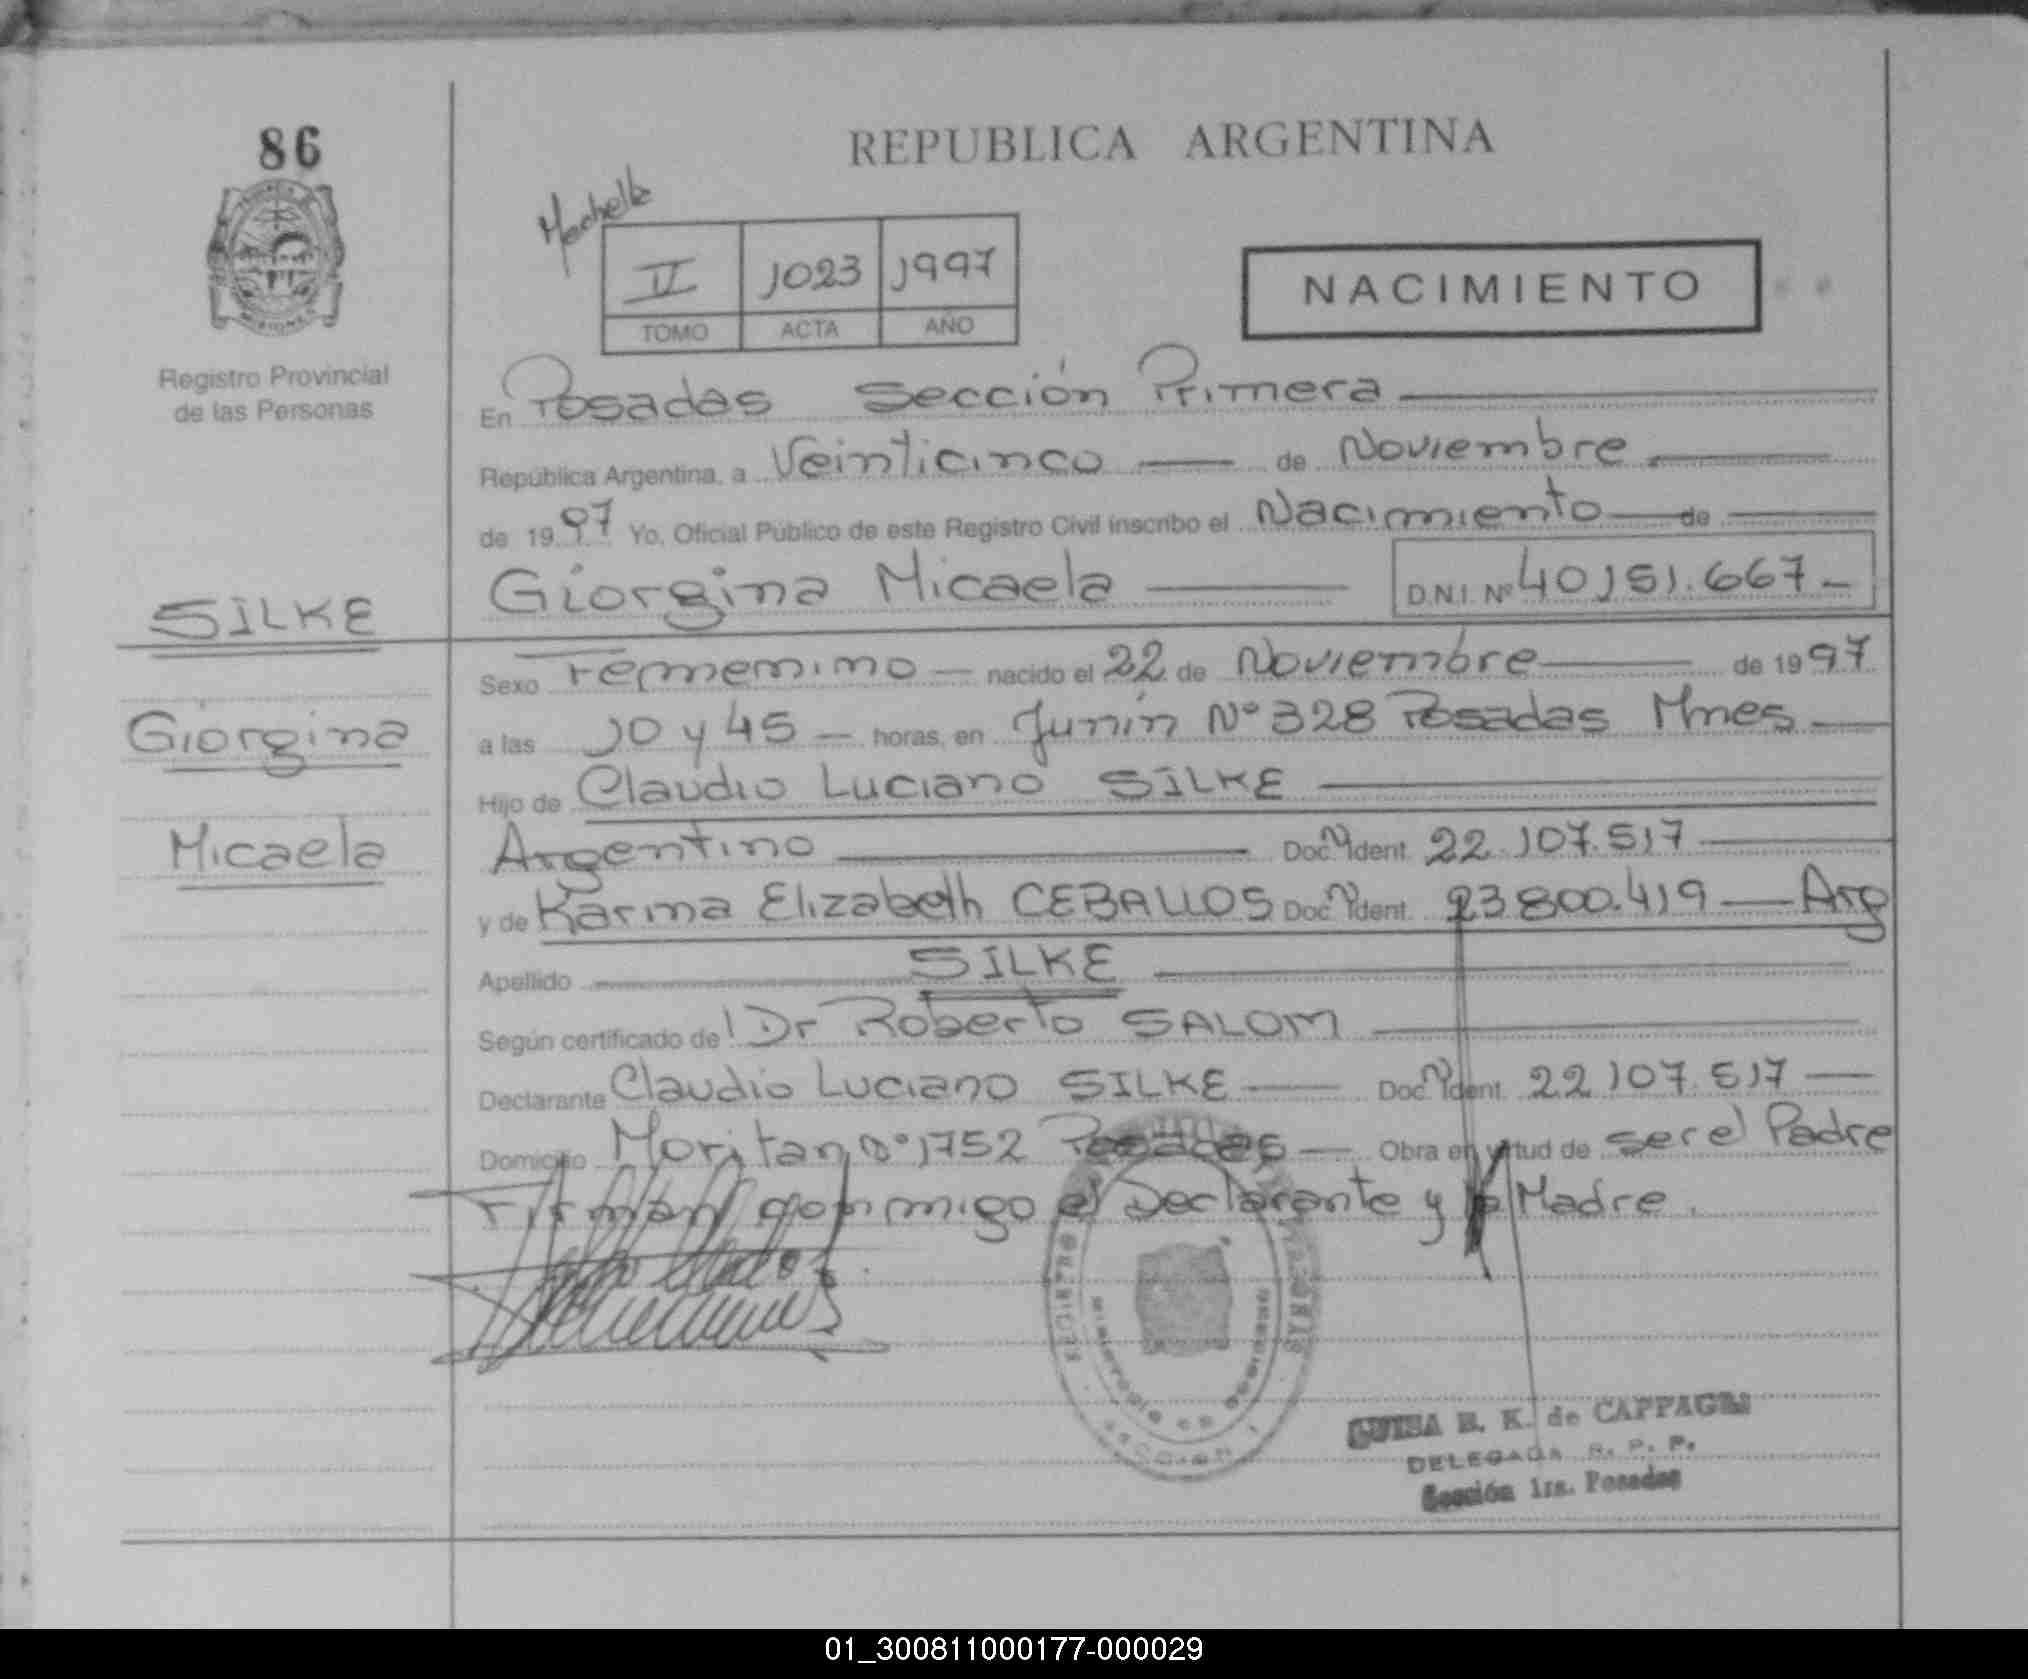 86
REPUBLICA ARGENTINA
II 1023 1997
TOMO ACTA AÑO
NACIMIENTO
Registro Provincial
de las Personas
En Posadas Sección Primera
República Argentina, a Veinticinco de Noviembre
de 1997 Yo, Oficial Público de este Registro Civil inscribo el Nacimiento de
Giorgina Micaela D.N.I. Nº 40151.667
SILKE
Giorgina
Micaela
Sexo Femenino nacido el 22 de Noviembre de 1997
a las 10 y 45 horas, en Junín Nº 328 Posadas Mnes
Hijo de Claudio Luciano SILKE
Argentino Doc. Ident. 22.107.517
y de Karina Elizabeth CEBALLOS Doc. Ident. 23800.419 Arg
Apellido SILKE
Según certificado de Dr Roberto SALOM
Declarante Claudio Luciano SILKE Doc. Ident. 22107.517
Domicilio Nº 1752 Posadas Obra en virtud de ser el Padre
Firman conmigo el Declarante y la Madre.
REGISTRO
MINISTERIO DE GOBIERNO
SECCION 1
K. de
DELEGADA R. P. P.
Sección 1ra. Posadas
01_300811000177-000029